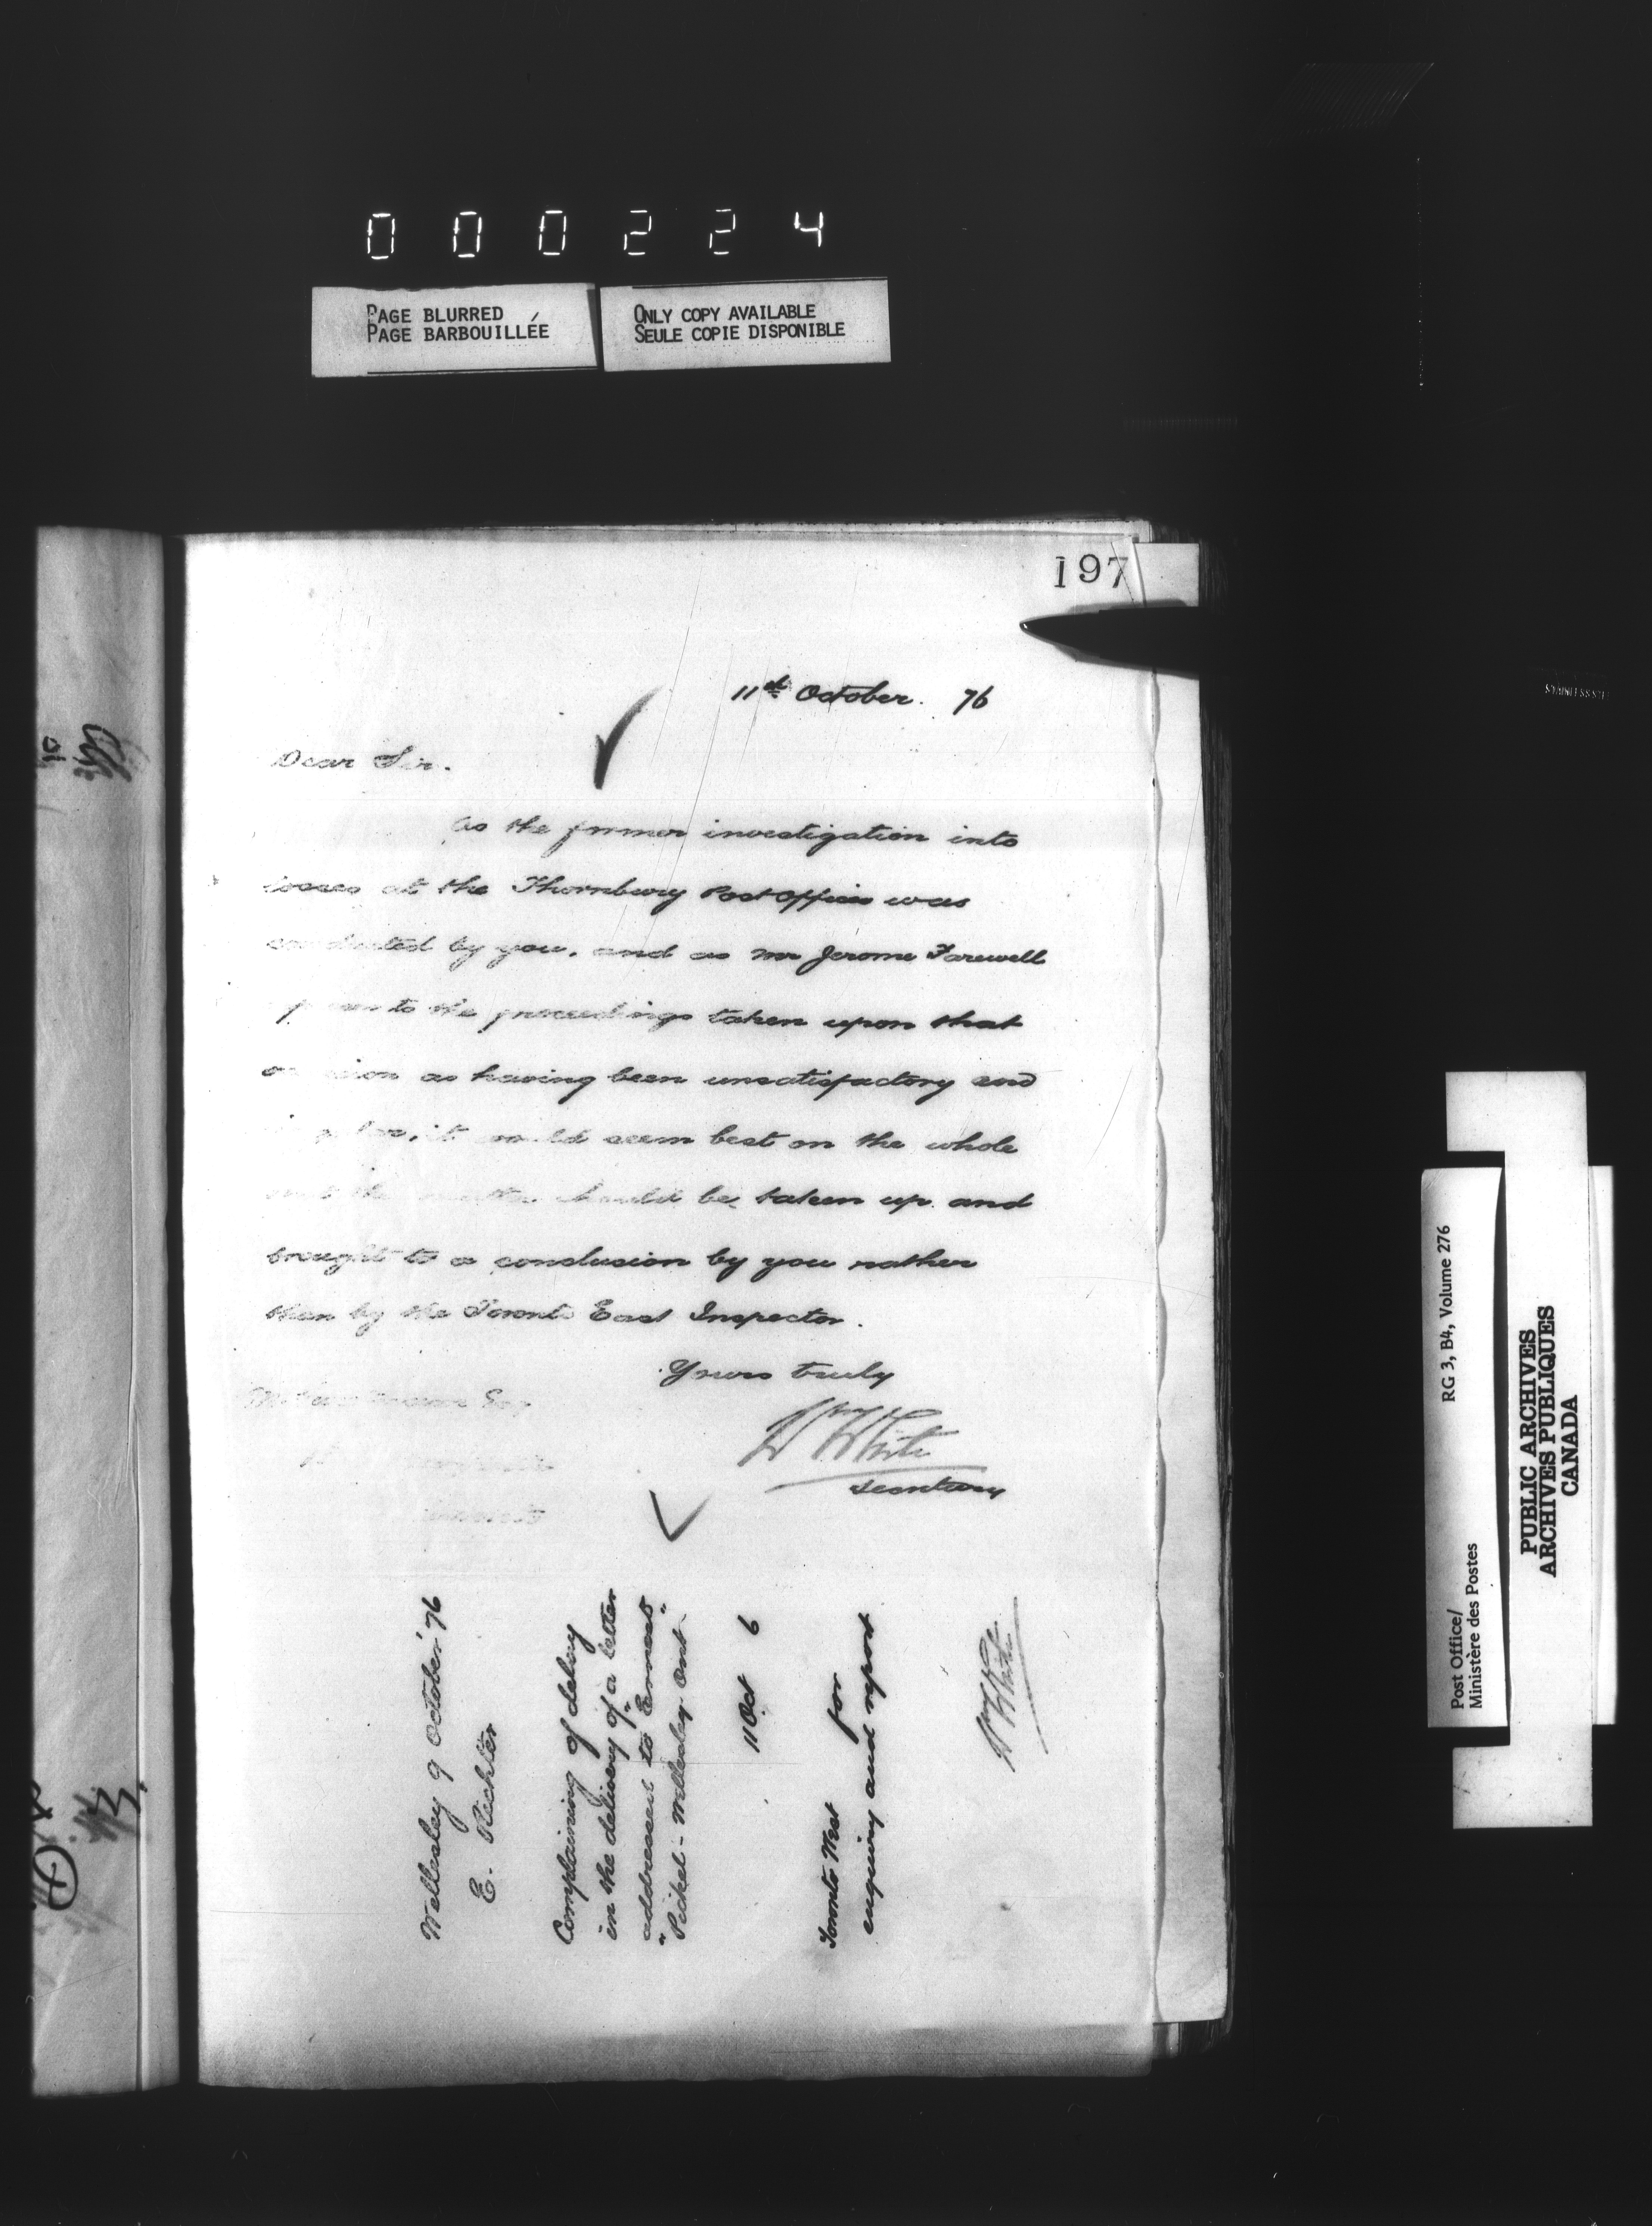 000224
PAGE BLURRED
PAGE BARBOUILLÉE
ONLY COPY AVAILABLE
SEULE COPIE DISPONIBLE
197
11th October. 76
Dear Sir.
As the former investigation into
losses at the Thornbury Post Office was
conducted by you, and as Mr Jerome Farewell
to the proceedings taken upon that
occasion as having been unsatisfactory and
it would seem best on the whole
that the matter should be taken up and
brought to a conclusion by you rather
than by the Toronto East Inspector.
Yours truly
Wm White
Secretary
Esq
Wellesley 9 October '76
E. Richter
Complaining of delay
in the delivery of a letter
addressed to "Ernest
"Pickel - Wellesley Ont"
11 Oct 6
Toronto West for
enquiry and report
Wm White
RG 3, B4, Volume 276
Post Office/
Ministère des Postes
PUBLIC ARCHIVES
ARCHIVES PUBLIQUES
CANADA